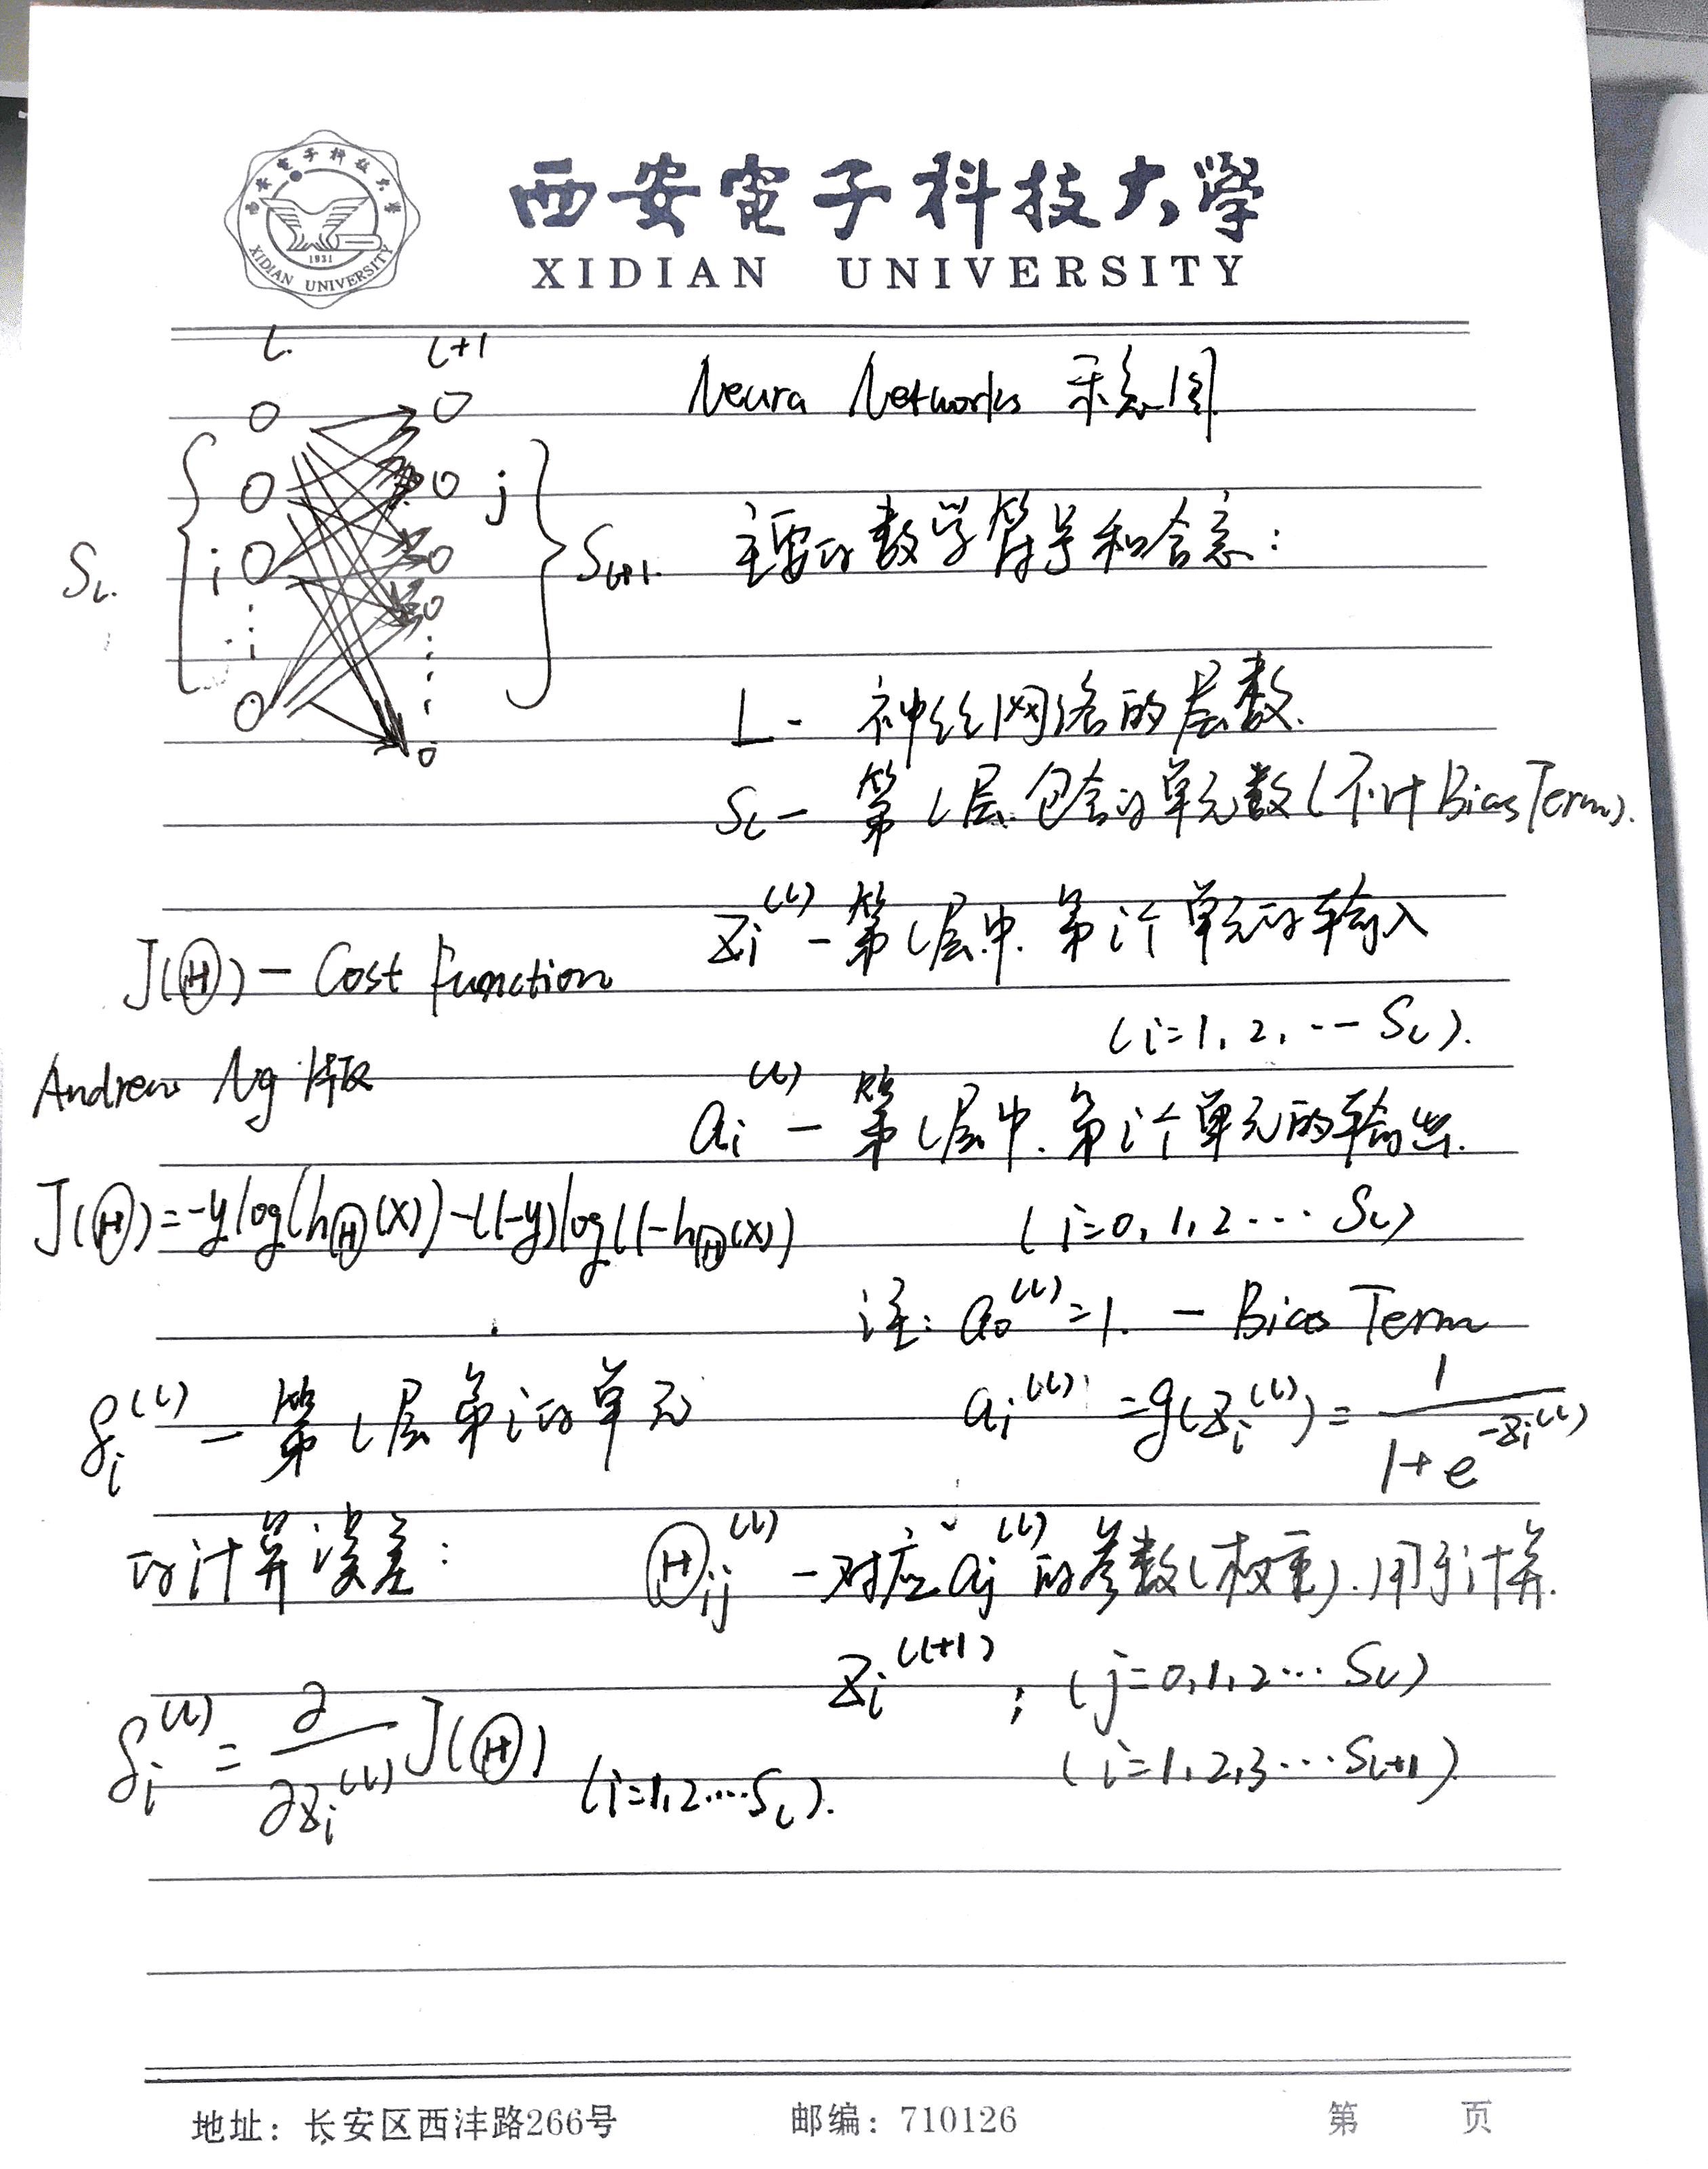 西安電子科技大學
XIDIAN UNIVERSITY
西安电子科技大学
1931
XIDIAN UNIVERSITY
l. l+1
Neura Networks 示意图
j
i
S_l. S_{l+1}.
主要的数学符号和含意:
L - 神经网络的层数.
S_l - 第l层包含的单元数(不计Bias Term).
z_i^{(l)} - 第l层中.第i个单元的输入
(i=1,2,...S_l).
J(Θ) - Cost function
Andrew Ng 版
a_i^{(l)} - 第l层中.第i个单元的输出.
(i=0,1,2...S_l)
J(Θ)=-ylog(h_Θ(x))-(1-y)log(1-h_Θ(x))
注: a_0^{(l)}=1. - Bias Term
a_i^{(l)}=g(z_i^{(l)})=1/(1+e^{-z_i^{(l)}})
δ_i^{(l)} - 第l层第i的单元
的计算误差:
Θ_{ij}^{(l)} - 对应a_j^{(l)}的参数(权重).用于计算.
z_i^{(l+1)}; (j=0,1,2...S_l)
(i=1,2,3...S_{l+1})
δ_i^{(l)}=∂/∂z_i^{(l)} J(Θ) (i=1,2....S_l).
地址: 长安区西沣路266号 邮编: 710126 第 页